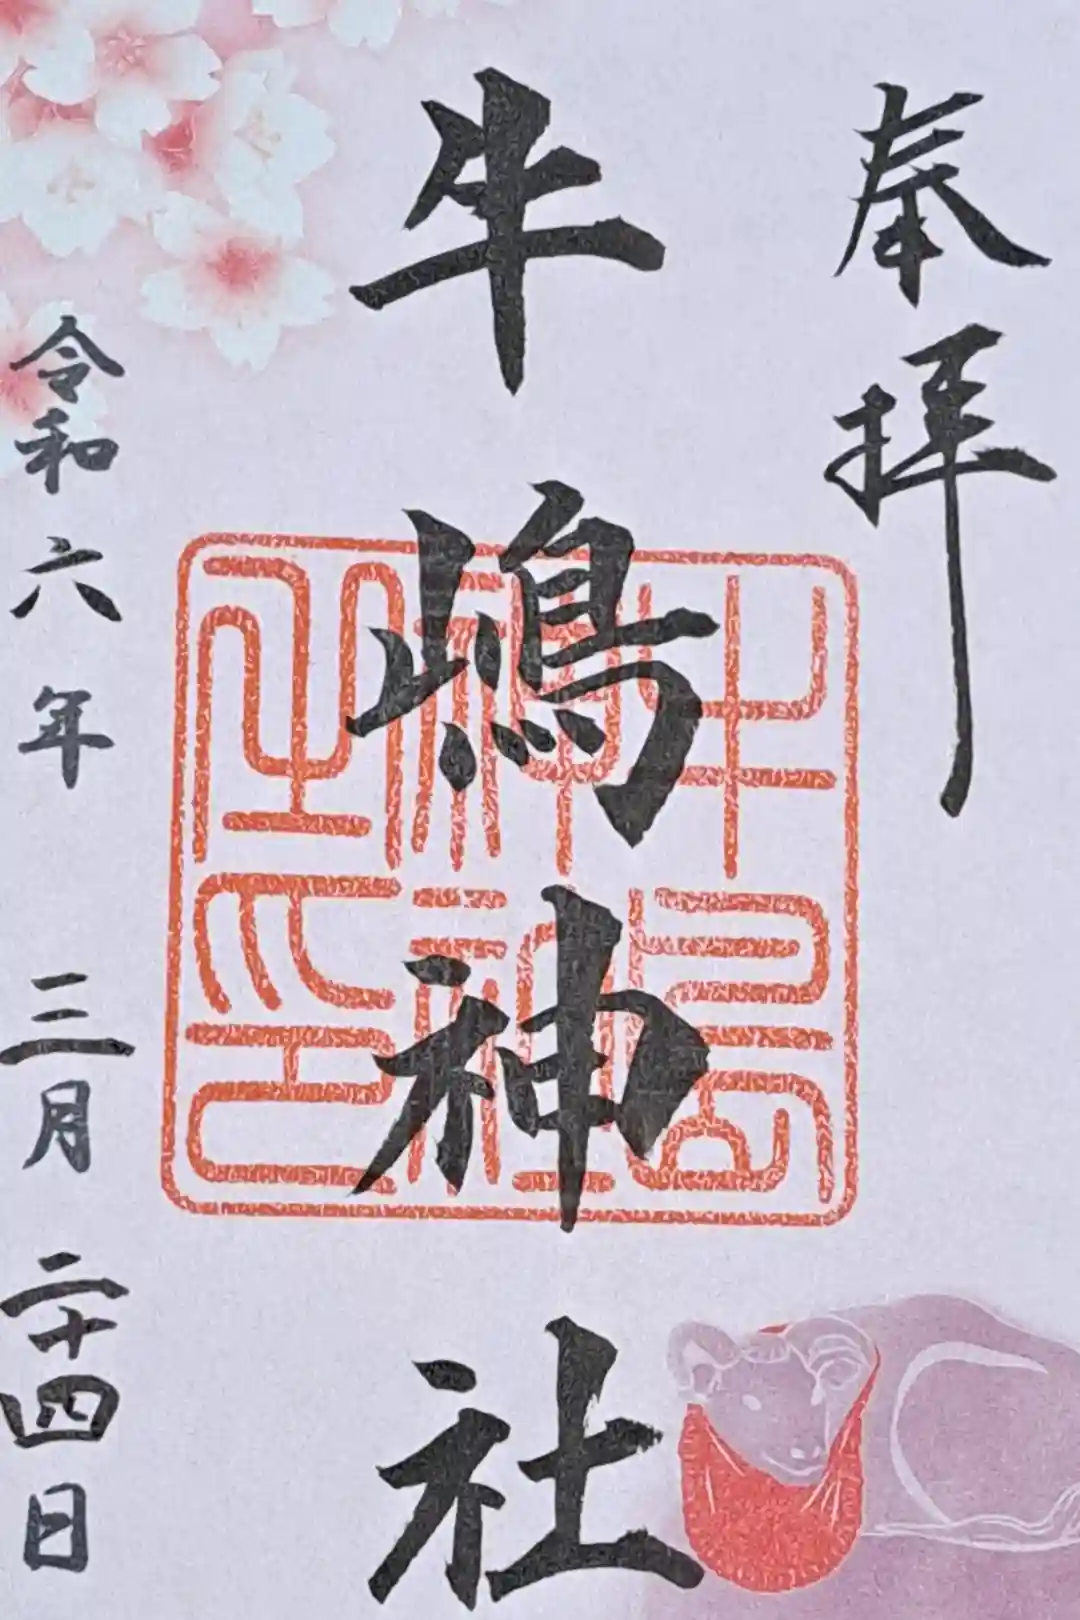 奉拝
牛嶋神社
牛嶋神社之印
令和六年三月二十四日